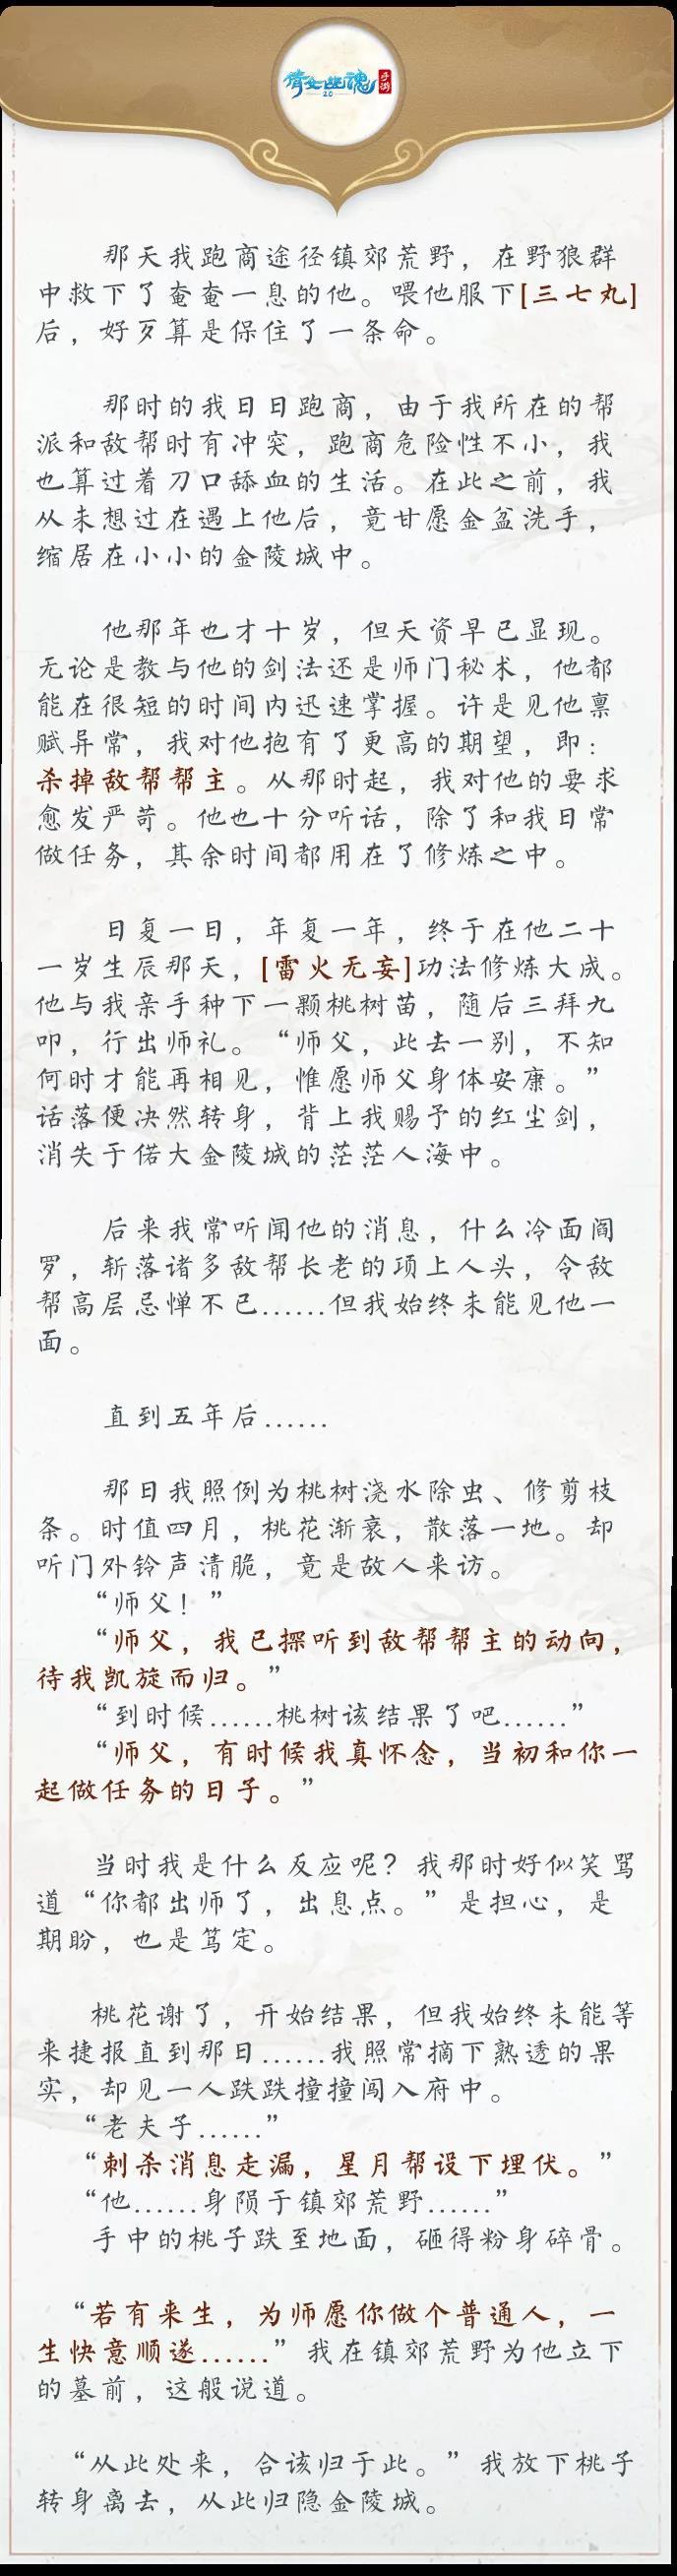 倩女幽魂
手游
2.0
那天我跑商途径镇郊荒野，在野狼群
中救下了奄奄一息的他。喂他服下[三七丸]
后，好歹算是保住了一条命。
那时的我日日跑商，由于我所在的帮
派和敌帮时有冲突，跑商危险性不小，我
也算过着刀口舔血的生活。在此之前，我
从未想过在遇上他后，竟甘愿金盆洗手，
缩居在小小的金陵城中。
他那年也才十岁，但天资早已显现。
无论是教与他的剑法还是师门秘术，他都
能在很短的时间内迅速掌握。许是见他禀
赋异常，我对他抱有了更高的期望，即：
杀掉敌帮帮主。从那时起，我对他的要求
愈发严苛。他也十分听话，除了和我日常
做任务，其余时间都用在了修炼之中。
日复一日，年复一年，终于在他二十
一岁生辰那天，[雷火无妄]功法修炼大成。
他与我亲手种下一颗桃树苗，随后三拜九
叩，行出师礼。“师父，此去一别，不知
何时才能再相见，惟愿师父身体安康。”
话落便决然转身，背上我赐予的红尘剑，
消失于偌大金陵城的茫茫人海中。
后来我常听闻他的消息，什么冷面阎
罗，斩落诸多敌帮长老的项上人头，令敌
帮高层忌惮不已......但我始终未能见他一
面。
直到五年后......
那日我照例为桃树浇水除虫、修剪枝
条。时值四月，桃花渐衰，散落一地。却
听门外铃声清脆，竟是故人来访。
“师父！”
“师父，我已探听到敌帮帮主的动向，
待我凯旋而归。”
“到时候......桃树该结果了吧......”
“师父，有时候我真怀念，当初和你一
起做任务的日子。”
当时我是什么反应呢？我那时好似笑骂
道“你都出师了，出息点。”是担心，是
期盼，也是笃定。
桃花谢了，开始结果，但我始终未能等
来捷报直到那日......我照常摘下熟透的果
实，却见一人跌跌撞撞闯入府中。
“老夫子......”
“刺杀消息走漏，星月帮设下埋伏。”
“他......身陨于镇郊荒野......”
手中的桃子跌至地面，砸得粉身碎骨。
“若有来生，为师愿你做个普通人，一
生快意顺遂......”我在镇郊荒野为他立下
的墓前，这般说道。
“从此处来，合该归于此。”我放下桃子
转身离去，从此归隐金陵城。